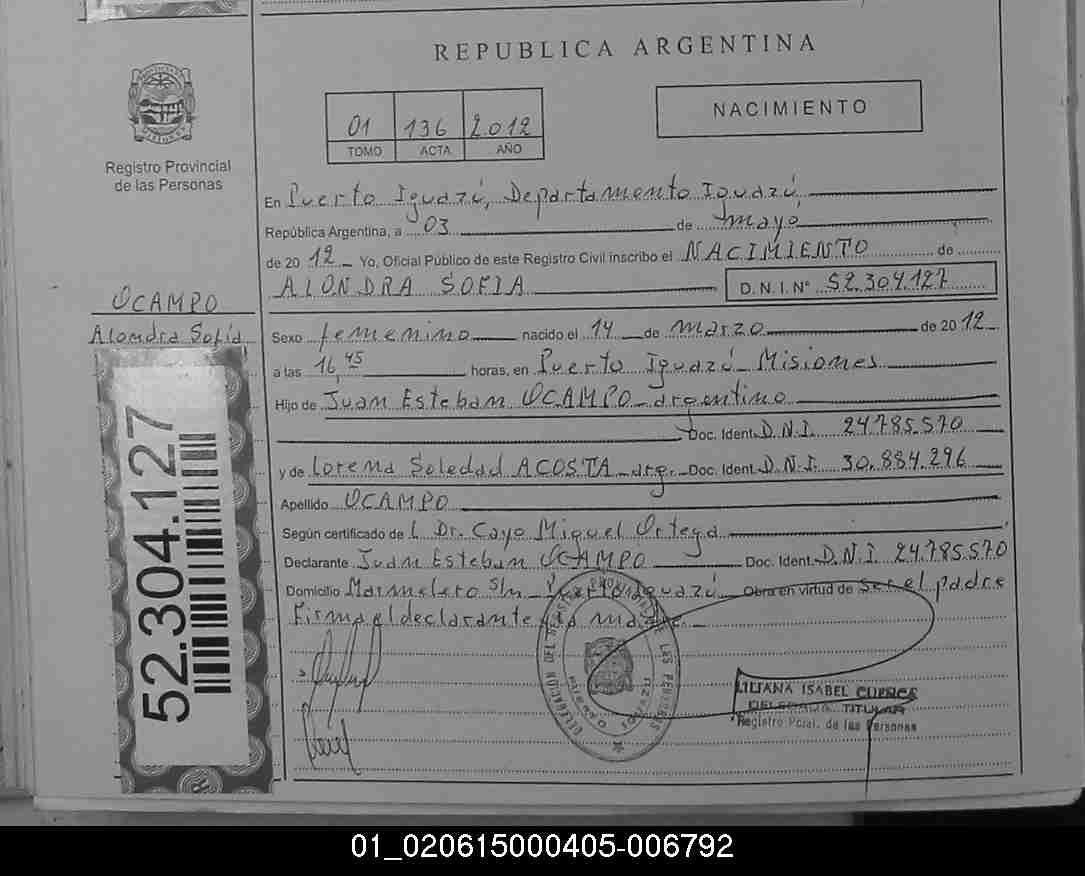 REPUBLICA ARGENTINA
01 136 2.012
TOMO ACTA AÑO
NACIMIENTO
Registro Provincial
de las Personas
En Puerto Iguazú, Departamento Iguazú,
República Argentina, a 03 de mayo
de 20 12 Yo, Oficial Público de este Registro Civil inscribo el NACIMIENTO de
ALONDRA SOFIA D.N.I. Nº 52.304.127
OCAMPO
Alondra Sofía
Sexo femenino nacido el 14 de marzo de 20 12
a las 16,45 horas, en Puerto Iguazú Misiones
Hijo de Juan Esteban OCAMPO argentino
Doc. Ident. D.N.I. 24.785.570
y de Lorena Soledad ACOSTA arg. Doc. Ident. D.N.I. 30.884.296
Apellido OCAMPO
Según certificado de Dr. Cayo Miguel Ortega
Declarante Juan Esteban OCAMPO Doc. Ident. D.N.I. 24.785.570
Domicilio s/n Puerto Iguazú Obra en virtud de ser el padre
Firma el declarante y la madre.
52.304.127
LILIANA ISABEL
DELEGADA TITULAR
Registro Pcial. de las Personas
01_020615000405-006792